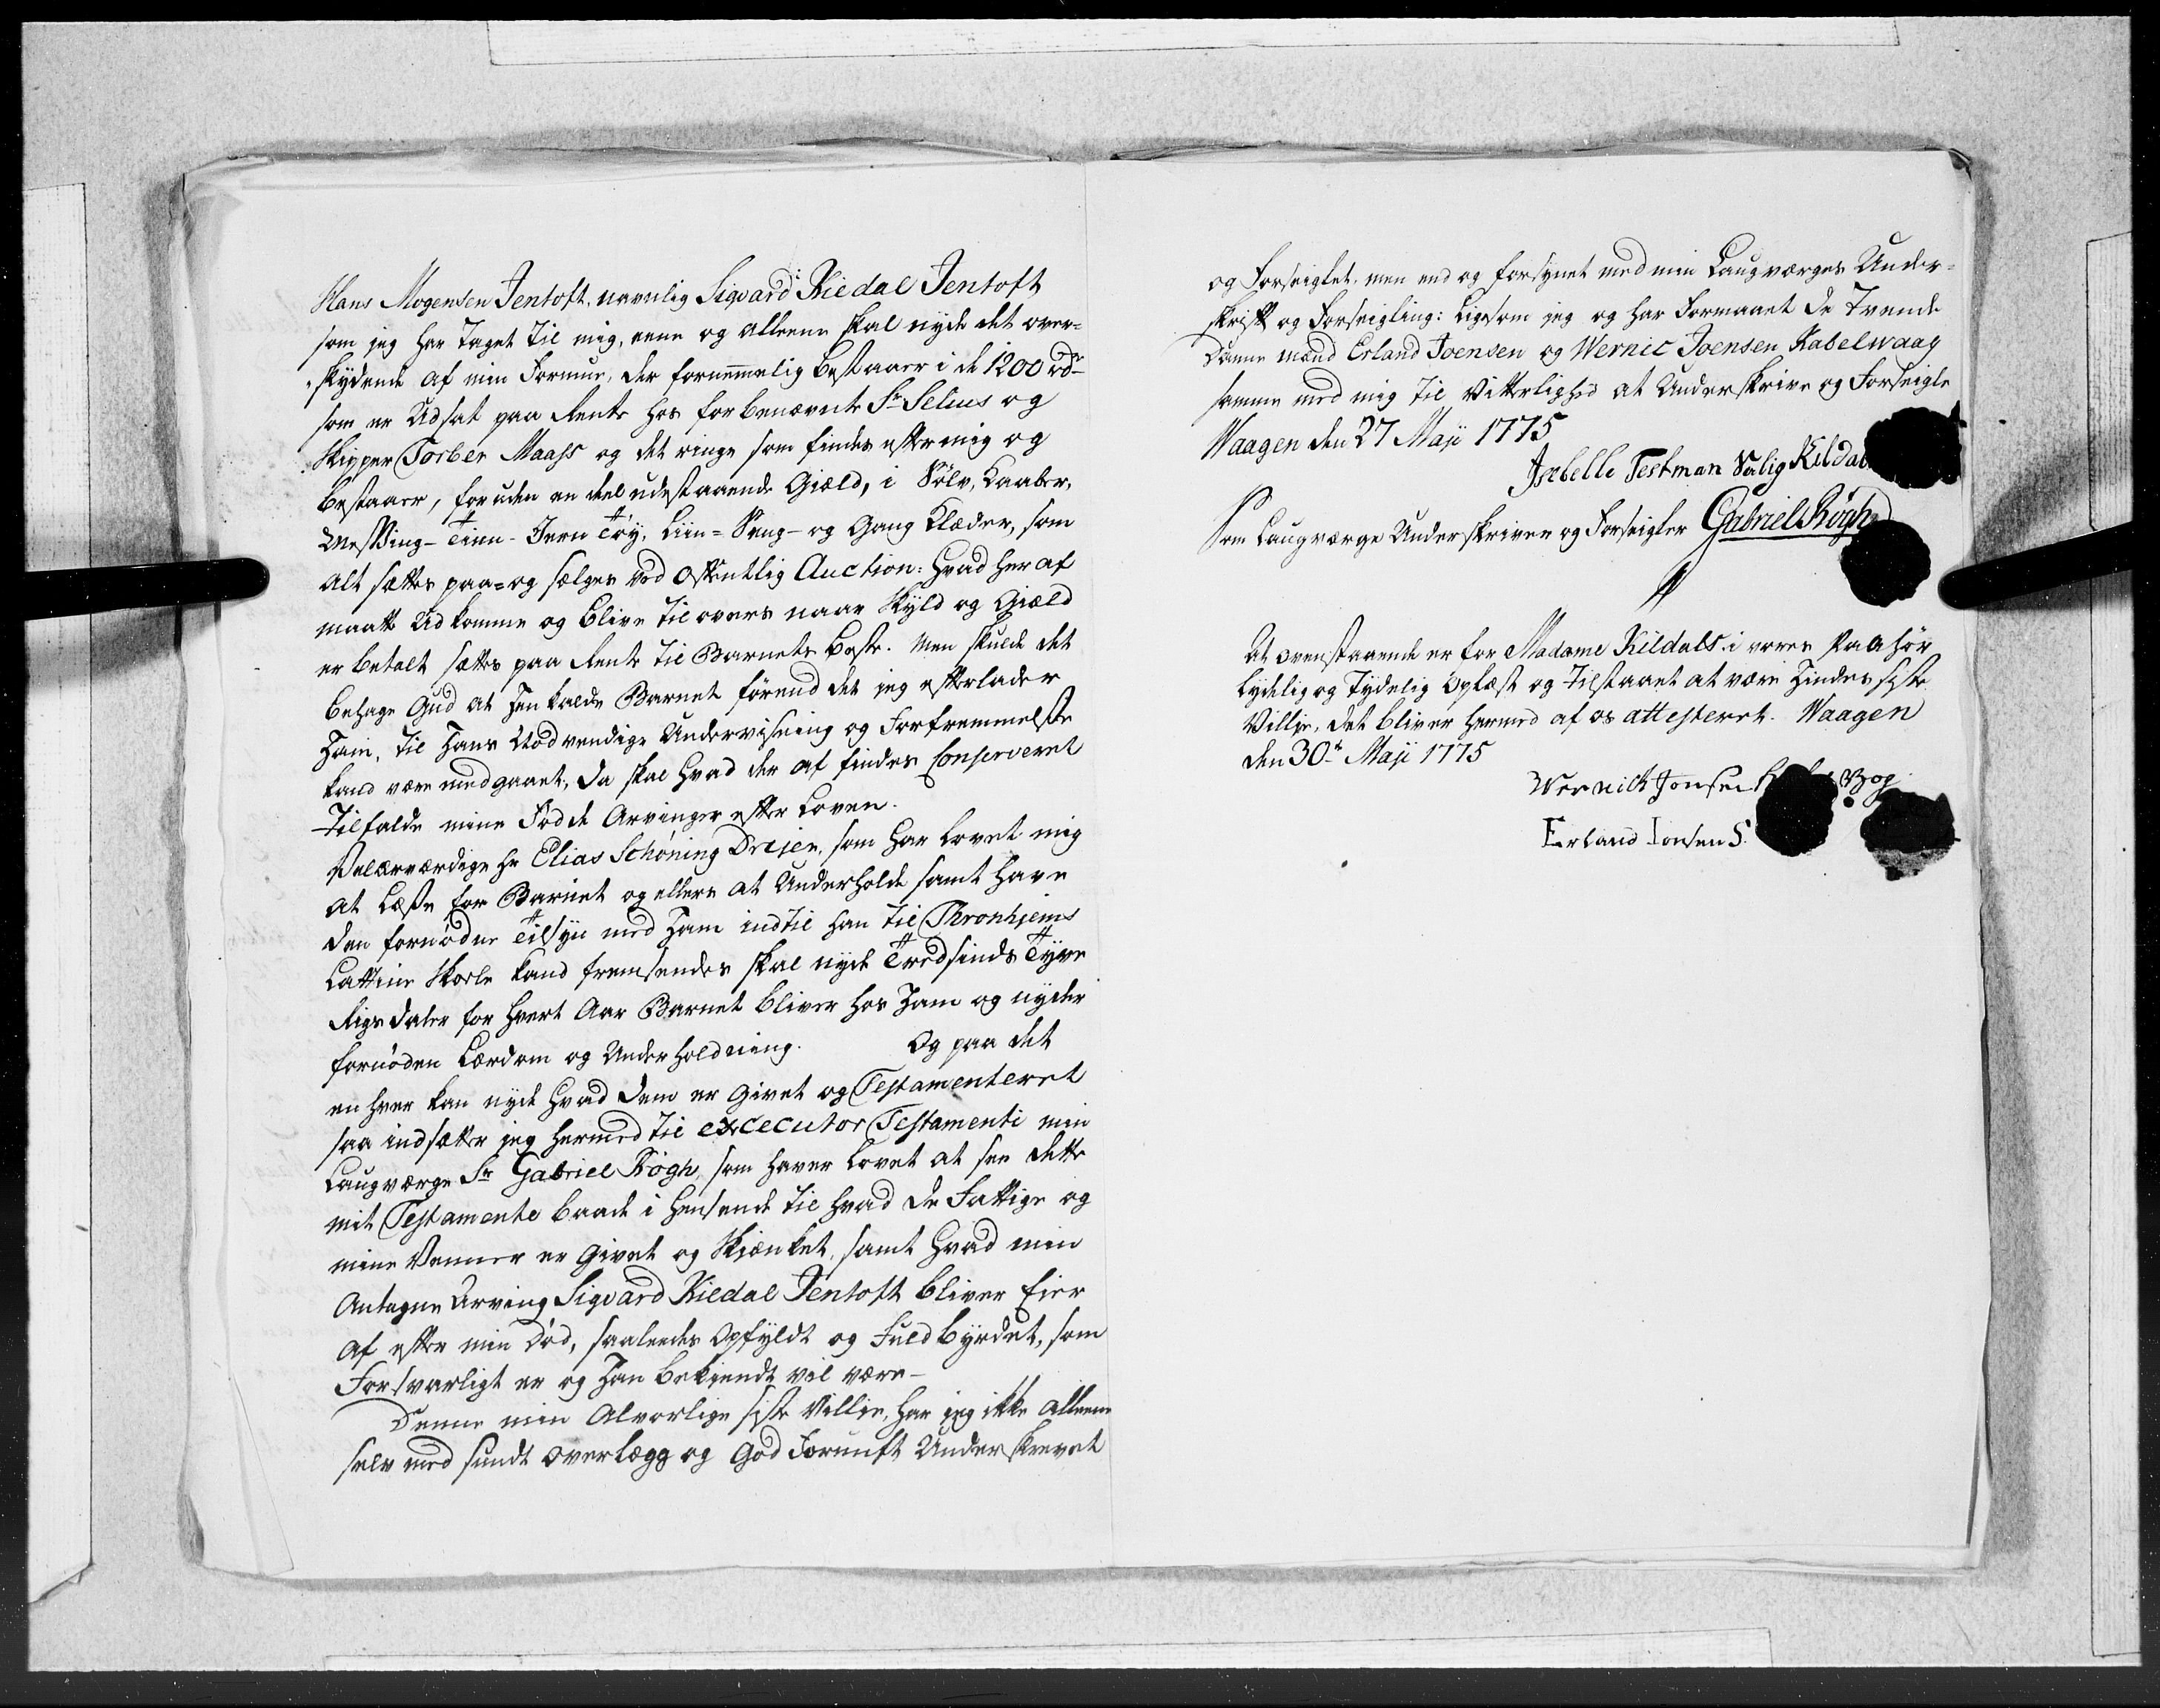 Hans Mogensen Jentoft, navnlig Sigvard Kiedal Jentoft
som jeg har Taget til mig, eene og alleene skal nyde det over-
skydende af min Formue, der fornemmelig bestaaer i de 1200 rdr
som er Udsat paa Rente hos forbenævnte Sr Selius og
Skipper Torber Maass og det ringe som findes efter mig og
bestaaer, foruden en deel udestaaende Giæld, i Sølv, Kaaber,
Messing- Tinn- Jern Tøy, Liin- Seng- og Gang Klæder, som
alt sættes paa- og sælges ved offentlig Auction: hvad her af
maatte Udkomme og blive til overs naar Skyld og Giæld
er betalt sættes paa Rente til Barnets beste. Men skulde det
behage Gud at henkalde Barnet førend det jeg efterlader
Ham, til Hans Nødvendige Undervisning og Forfremmelse
kand være medgaaet, da skal hvad der af findes Conserveret
Tilfalde mine Fødde Arvinger efter Loven.
Velærværdige Hr Elias Schøning Dreier, som har lovet mig
at Læsse for Barnet og ellers at Underholde samt have
den fornødne Tilsyn med Ham indtil han til Thronhiems
Lattine Skoele kand fremsendes skal nyde Tredsinds Tyve
Rigsdaler for hvert Aar Barnet bliver hos Ham og nyder
fornøden Lærdom og Underholdning. Og paa det
en hver kan nyde hvad dem er Givet og Testamenteret
saa indsætter jeg hermed til excecutor Testamenti min
Laugværge Sr Gabriel Røgh, som haver lovet at see dette
mit Testamente baade i henseende til hvad de Fattige og
mine Venner er Givet og Skiænket, samt hvad min
Antagne Arving Sigvard Kiedal Jentoft bliver Eier
af efter min Død, saaleedes Opfyldt og Fuldbyrdet, som
Forsvarligt er og Han bekiendt vil være-
Denne min Alvorlige siste Villie, har jeg ikke alleene
selv med sundt overlægg og God Fornuft Underskrevet
og Forseiglet, men end og forsynet med min Laugværges Under-
skrift og Forseigling: Ligesom jeg og har Formaaet de Tvende
Danne mænd Erland Joensen og Wernic Joensen Kabelwaag
samme med mig til Vitterlighed at Underskrive og Forseigle
Waagen den 27 Maji 1775
Isebelle Testman Salig Kildal
Som Laugværge Underskriver og Forseigler Gabriel Røgh
At ovenstaaende er for Madame Kildals i vores Paahør
lydelig og Tydelig Oplæst og tilstaaet at være Hindes siste
Villie, det bliver hermed af os attesteret. Waagen
den 30te Maji 1775
Wernick Jonsen Vog
Erland Ionsen S.